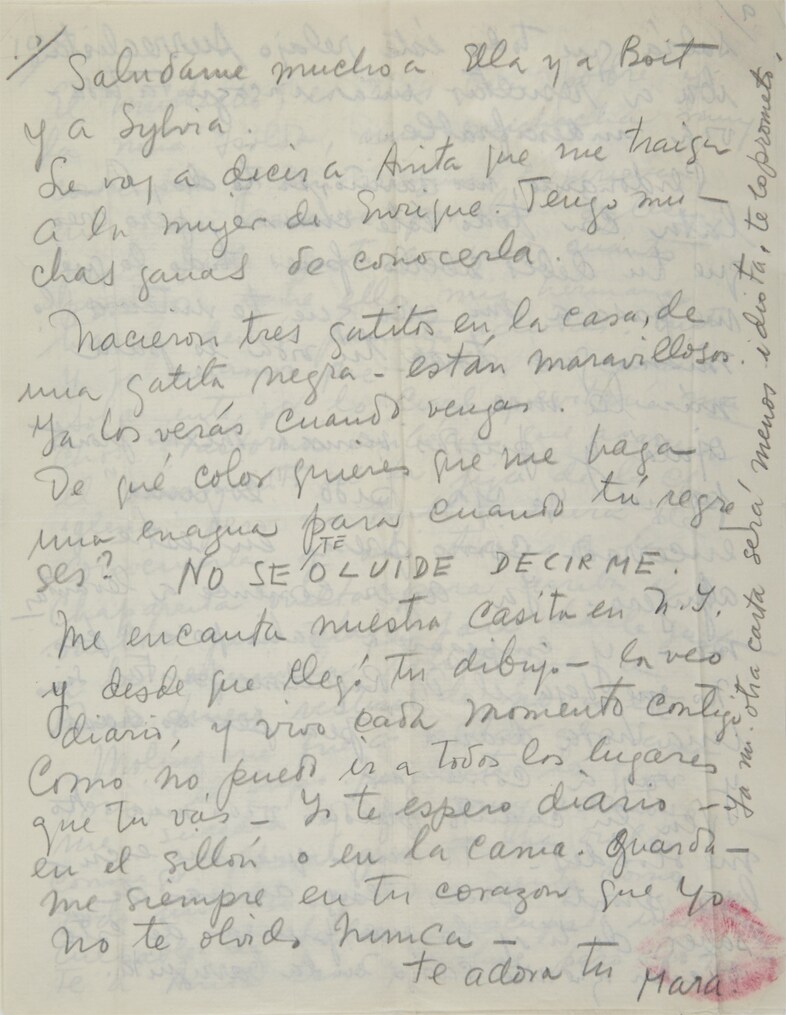 Salúdame mucho a Ella y a Boit
y a Sylvia.
Le voy a decir a Anita que me traiga
a la mujer de Enrique. Tengo mu-
chas ganas de conocerla.
Nacieron tres gatitos en la casa, de
una gatita negra - están maravillosos.
Ya los verás cuando vengas.
De qué color quieres que me haga
una enagua para cuando tú regre
ses? NO SE TE OLVIDE DECIRME.
Me encanta nuestra casita en N.Y.
y desde que llegó tu dibujo - la veo
diario, y vivo cada momento contigo
Como no puedo ir a todos los lugares
que tu vas - Yo te espero diario -
en el sillón o en la cama. Guarda-
me siempre en tu corazon que yo
no te olvido nunca -
te adora tu Mara.
Ya mi otra carta será menos idiota, te lo prometo.